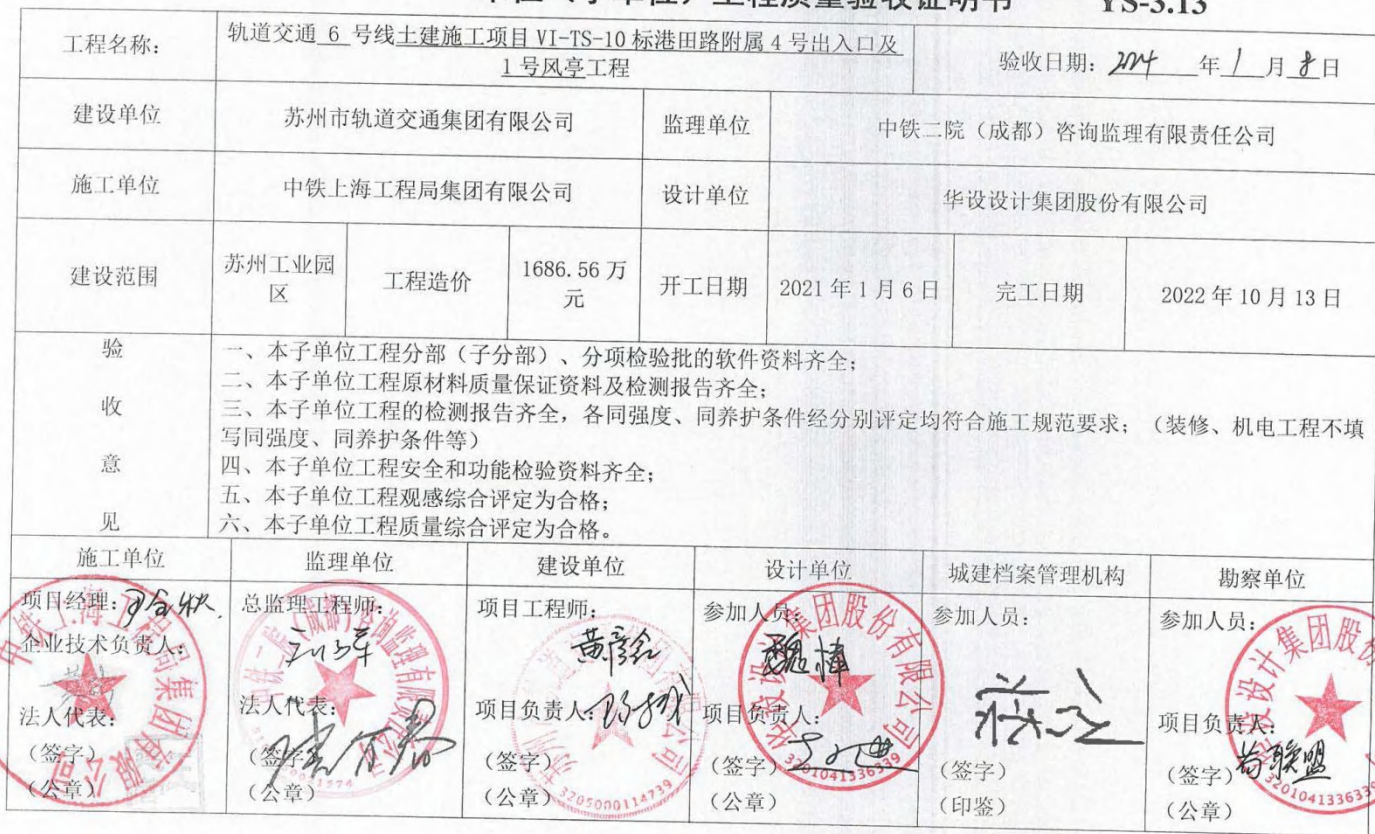 单位（子单位）工程质量验收证明书 YS-3.13
工程名称：
轨道交通 6 号线土建施工项目 VI-TS-10 标港田路附属 4 号出入口及
1 号风亭工程
验收日期：2024 年 1 月 8 日
建设单位 苏州市轨道交通集团有限公司 监理单位 中铁二院（成都）咨询监理有限责任公司
施工单位 中铁上海工程局集团有限公司 设计单位 华设设计集团股份有限公司
建设范围 苏州工业园区 工程造价 1686.56 万元 开工日期 2021 年 1 月 6 日 完工日期 2022 年 10 月 13 日
验收意见
一、本子单位工程分部（子分部）、分项检验批的软件资料齐全；
二、本子单位工程原材料质量保证资料及检测报告齐全；
三、本子单位工程的检测报告齐全，各同强度、同养护条件经分别评定均符合施工规范要求；（装修、机电工程不填
写同强度、同养护条件等）
四、本子单位工程安全和功能检验资料齐全；
五、本子单位工程观感综合评定为合格；
六、本子单位工程质量综合评定为合格。
施工单位 监理单位 建设单位 设计单位 城建档案管理机构 勘察单位
项目经理： 总监理工程师： 项目工程师： 参加人员： 参加人员： 参加人员：
企业技术负责人：
法人代表： 法人代表： 项目负责人： 项目负责人： 项目负责人：
（签字） （签字） （签字） （签字） （签字） （签字）
（公章） （公章） （公章） （公章） （印鉴） （公章）
3205000114739
3201041336339
3201041336339